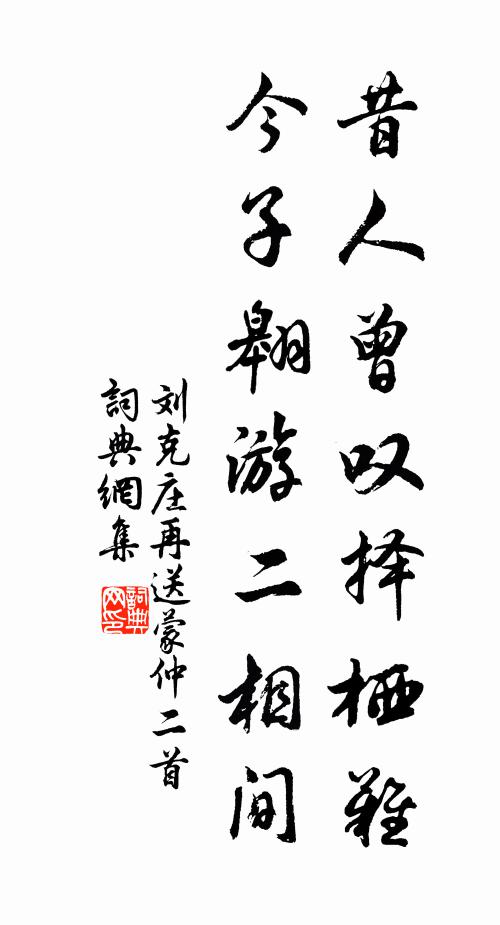 昔人曾叹择栖难
今子翱游二相间
刘克庄再送蒙仲二首
詞典網集
詞典网印